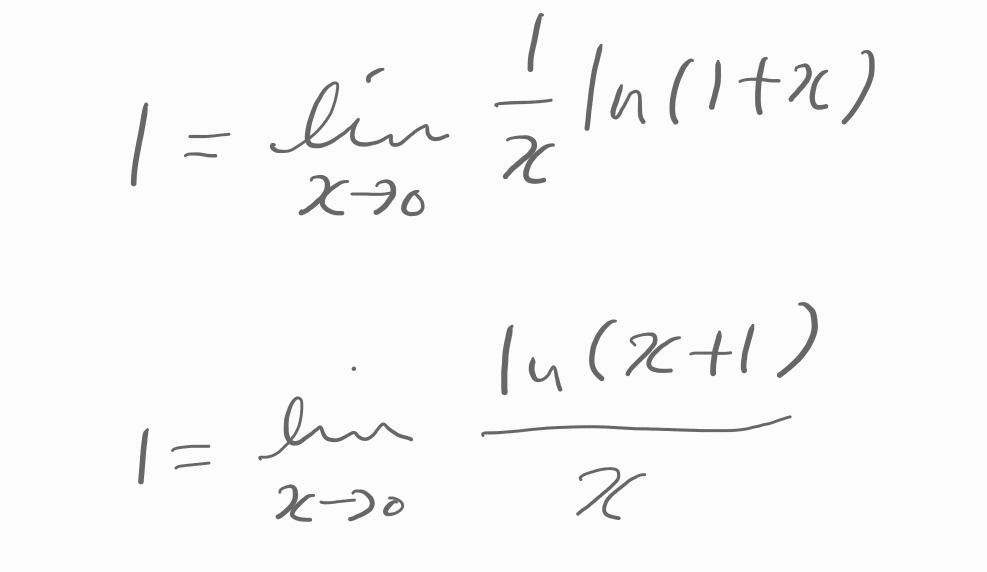 1 = lim x→0 1/x ln(1+x)
1 = lim x→0 ln(x+1)/x